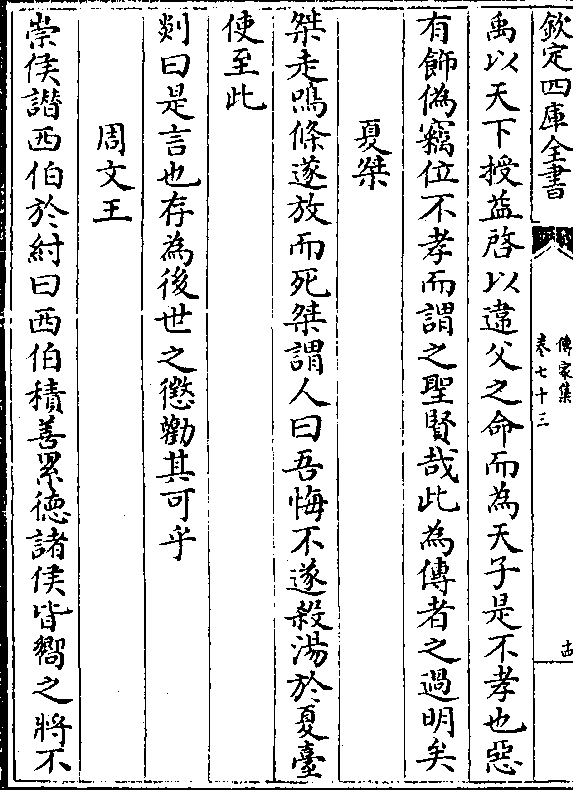 欽定四庫全書
傳家集
卷七十三
古
禹以天下授益啓以違父之命而為天子是不孝也惡
有飾偽竊位不孝而謂之聖賢哉此為傳者之過明矣
夏桀
桀走鳴條遂放而死桀謂人曰吾悔不遂殺湯於夏臺
使至此
剡曰是言也存為後世之懲勸其可乎
周文王
崇侯譖西伯於紂曰西伯積善累德諸侯皆嚮之將不